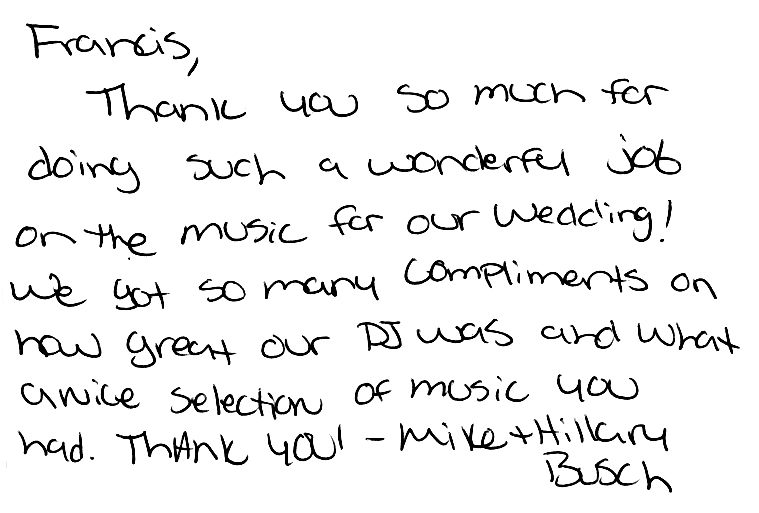 Francis,
Thank you so much for
doing such a wonderful job
on the music for our wedding!
We got so many compliments on
how great our DJ was and what
a nice selection of music you
had. Thank you! - Mike + Hillary
Busch